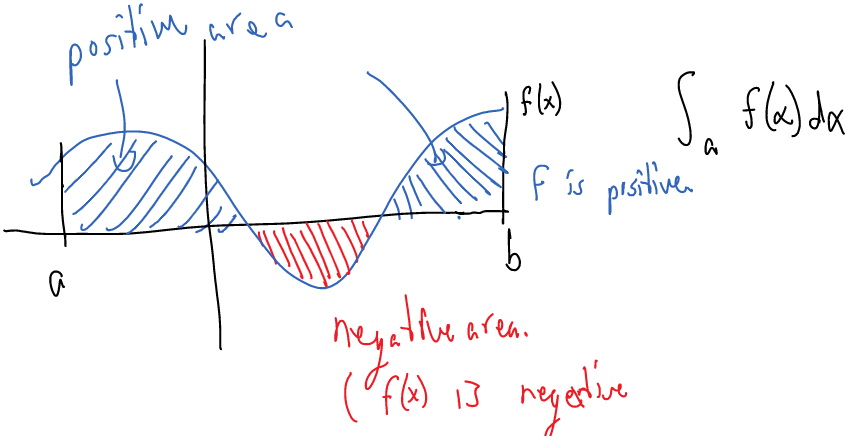 positive area
f(x)
∫ₐ f(x)dx
f is positive
a
b
negative area.
( f(x) is negative